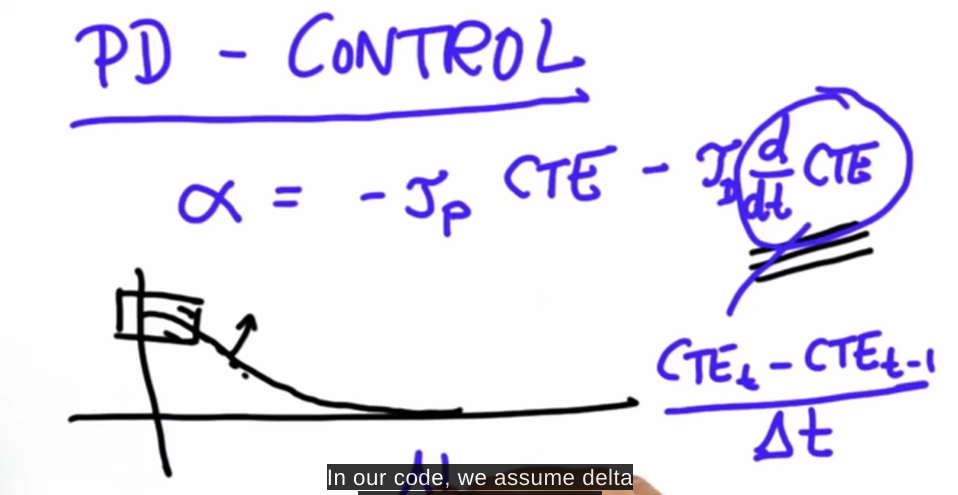 PD - CONTROL
α = - τp CTE - τD d/dt CTE
CTEt - CTEt-1
Δt
In our code, we assume delta